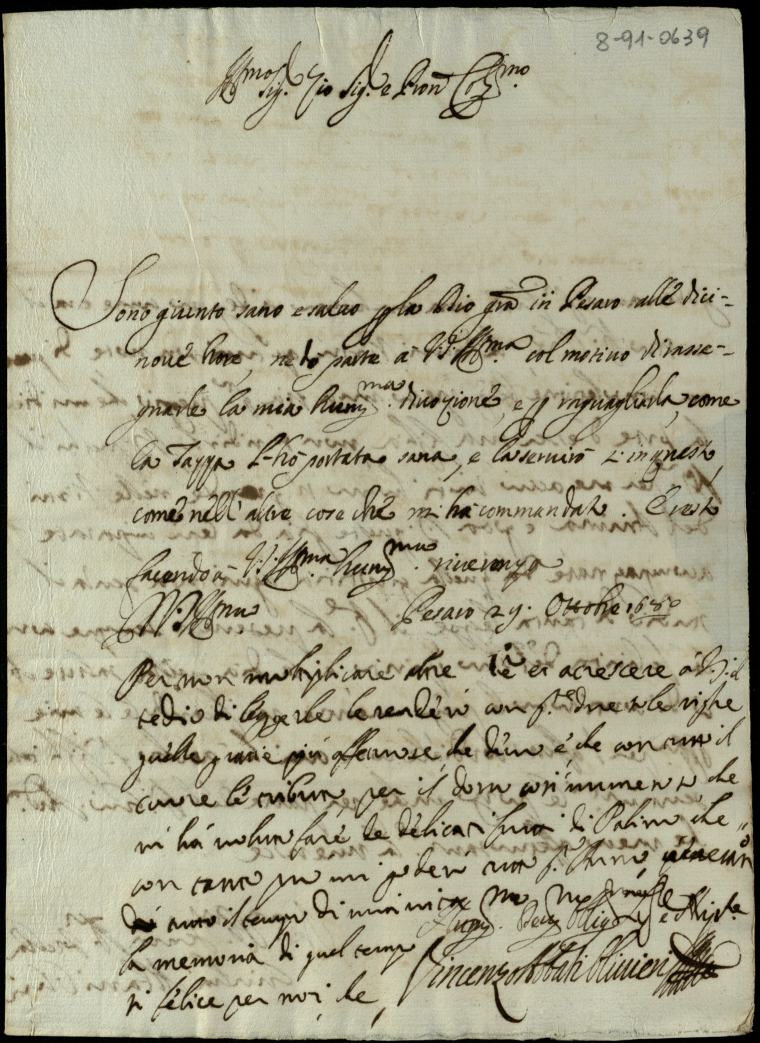 8-91-0639
Ill.mo Sig. Zio Sig. e Pron Col.mo
Sono giunto sano e salvo p la Dio gra in Pesaro alle dici=
nove hore, ne dò parte à V.S. Ill.ma col motivo di rasse=
gnarle la mia hum.ma divozione, e p raguagliarla, come
la Tappa l'hò portata sana, e la servirò in questo,
come nell'altre cose che mi ha commandate. E resto
facendo à V.S. Ill.ma hum.ma riverenza
D V.S. Ill.ma Pesaro 29. Ottobre 1680
Per non moltiplicare altre et acrescere à V.S. il
tedio di leggerle le renderò con queste righe
quelle grazie più che devo, e che con tutto il
cuore le tributo, per il dono così numeroso, che
mi hà voluto fare de delicati frutti di che
con tanto mi goderò
tutto il tempo di mia vita
la memoria di quel tempo
sì felice per noi, che
Hum.mo Oblig.mo e Nipote
Vincenzo Abbati Olivieri